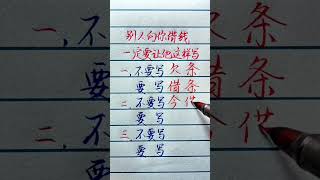 别人向你借钱
一定要让他这样写
一、不要写欠条
要写借条
二、不要写今借
要写
三、不要写
要写